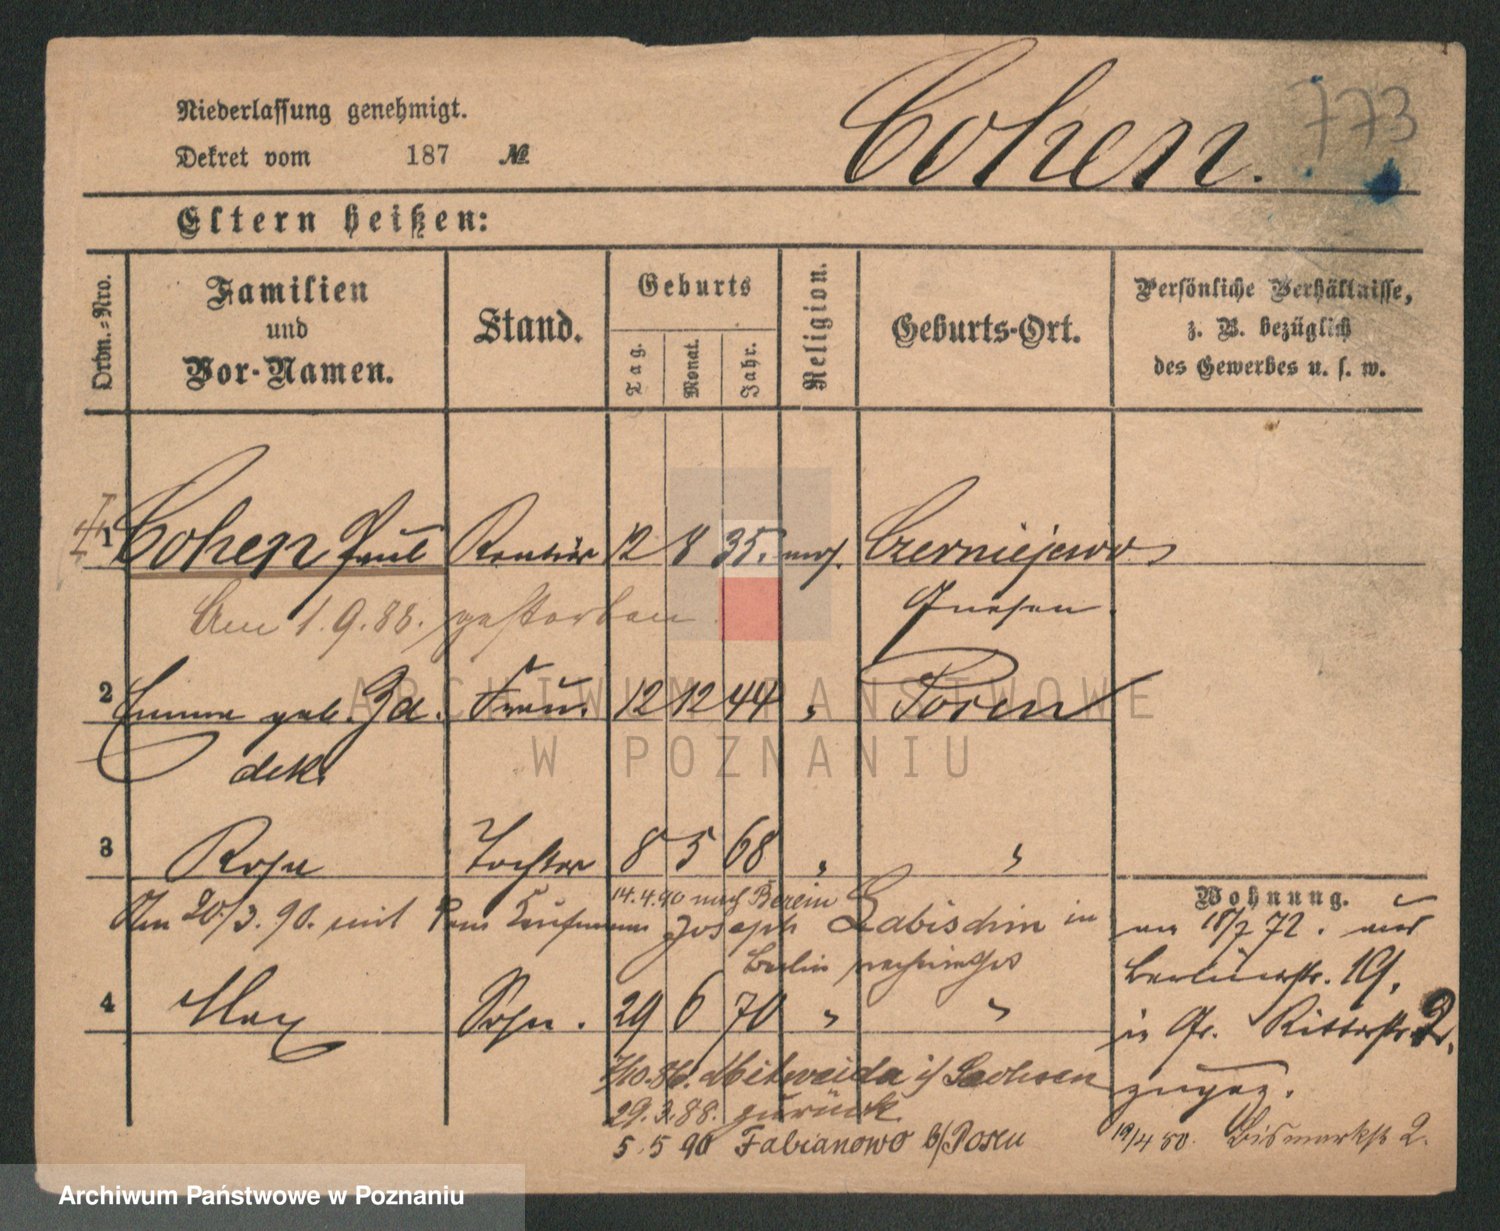 Niederlassung genehmigt.
Cohen.
773
Dekret vom 187 №
Eltern heißen:
Ordn.-Nro.
Familien
und
Vor-Namen.
Stand.
Geburts
Tag.
Monat.
Jahr.
Religion.
Geburts-Ort.
Persönliche Verhältnisse,
z. B. bezüglich
des Gewerbes u. s. w.
1 Cohen Paul Rentier 12 8 35. mos. Czerniejewo
Am 1.9.88. gestorben Gnesen.
2 Emma geb. Za- Frau. 12 12 44 " Posen
dek.
3 Rosa Tochter 8 5 68 " "
14.4.90 nach Berlin
Am 20/3.90. mit dem Kaufmann Joseph Labischin in
Berlin verheirathet
4 Max Sohn. 29 6 70 " "
Mitweida i/ Sachsen
29.3.88. zurück
5.5 90 Fabianowo b/Posen
Wohnung.
am 18/7 72. aus
Berlinerstr. 19,
in Gr. Ritterstr. 2,
zugez.
19/4 80. Bismarkstr 2.
ARCHIWUM PAŃSTWOWE
W POZNANIU
Archiwum Państwowe w Poznaniu